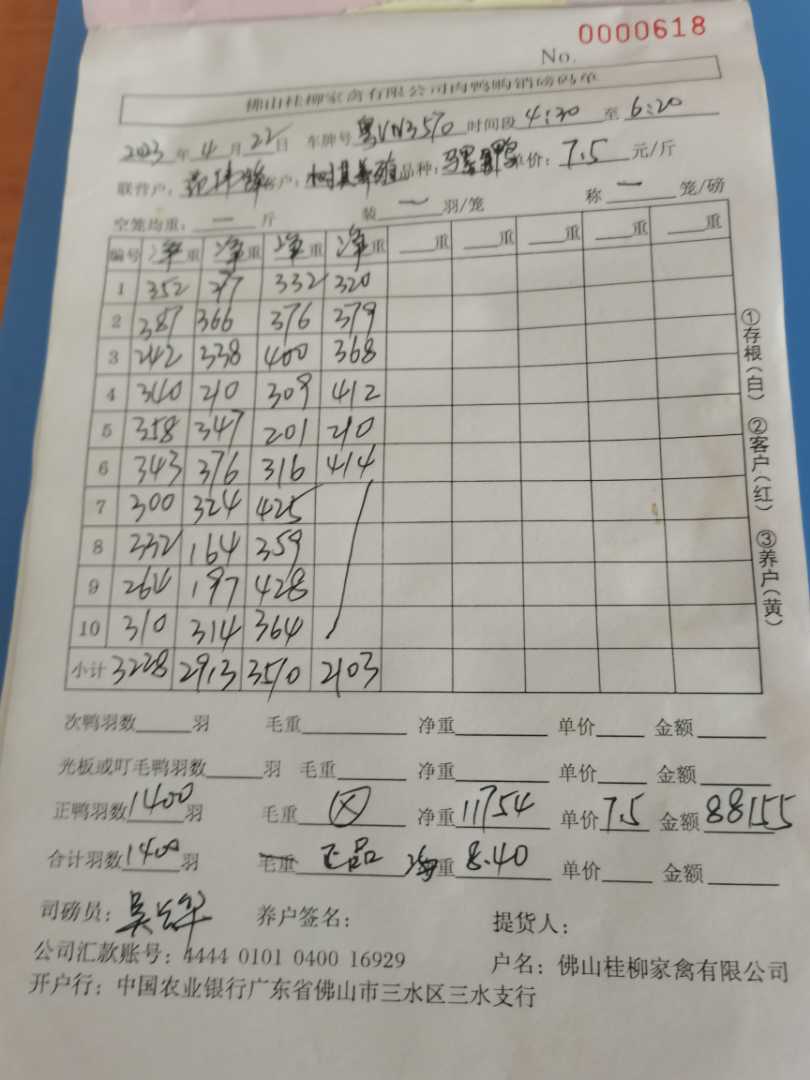 No. 0000618
佛山桂柳家禽有限公司肉鸭购销磅码单
2023 年 4 月 22 日 车牌号 粤VN3570 时间段 4:30 至 6:20
联营户: 客户: 品种: 单价: 7.5 元/斤
空笼均重: 一 斤 装 一 羽/笼 称 一 笼/磅
编号 净重 净重 净重 净重 重 重 重 重 重
1 352 277 332 320
2 387 366 376 379
3 242 338 400 368
4 340 210 309 412
5 358 347 201 210
6 343 376 316 414
7 300 324 425
8 332 164 359
9 264 197 428
10 310 314 364
小计 3228 2913 3510 2103
次鸭羽数 羽 毛重 净重 单价 金额
光板或叮毛鸭羽数 羽 毛重 净重 单价 金额
正鸭羽数 1400 羽 毛重 净重 11754 单价 7.5 金额 88155
合计羽数 1400 羽 毛重 正品 重 8.40 单价 金额
司磅员: 养户签名: 提货人:
公司汇款账号: 4444 0101 0400 16929 户名: 佛山桂柳家禽有限公司
开户行: 中国农业银行广东省佛山市三水区三水支行
①存根(白) ②客户(红) ③养户(黄)